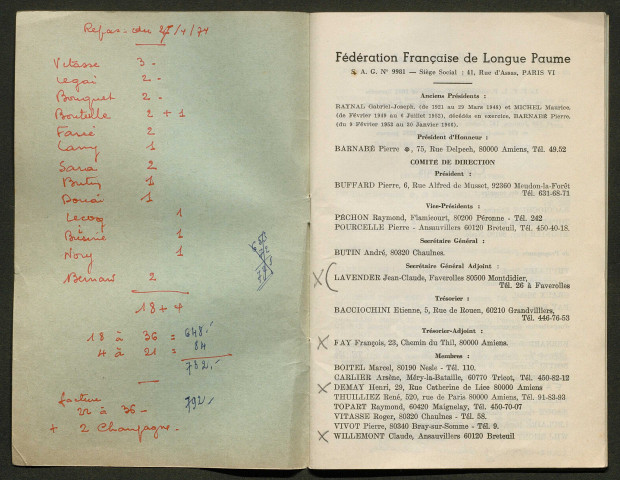 Repas du 27/4/74
Vitasse 3
Legai 2
Bouquet 2
Boutelle 2 + 1
Farré 2
Lamy 1
Sara 2
Butin 1
Douai 1
Lecocq 1
1
Nory 1
Bernard 2
18 + 4
18 à 36 = 648,-
4 à 21 = 84
732,-
facture 792,-
22 à 36 -
+ 2 Champagne -
648
72
Fédération Française de Longue Paume
S. A. G. N° 9981 — Siège Social : 41, Rue d'Assas, PARIS VI
Anciens Présidents :
RAYNAL Gabriel-Joseph, (de 1921 au 29 Mars 1948) et MICHEL Maurice,
(de Février 1949 au 6 Juillet 1952), décédés en exercice, BARNABÉ Pierre,
(du 8 Février 1953 au 20 Janvier 1968).
Président d'Honneur :
BARNABÉ Pierre, 75, Rue Delpech, 80000 Amiens, Tél. 49.52
COMITÉ DE DIRECTION
Président :
BUFFARD Pierre, 6, Rue Alfred de Musset, 92360 Meudon-la-Forêt
Tél. 631-68-71
Vice-Présidents :
PÉCHON Raymond, Flamicourt, 80200 Péronne - Tél. 242
POURCELLE Pierre - Ansauvillers 60120 Breteuil, Tél. 450-40-18.
Secrétaire Général :
BUTIN André, 80320 Chaulnes.
Secrétaire Général Adjoint :
X ( LAVENDER Jean-Claude, Faverolles 80500 Montdidier,
Tél. 26 à Faverolles
Trésorier :
BACCIOCHINI Etienne, 5, Rue de Rouen, 60210 Grandvilliers,
Tél. 446-76-53
Trésorier-Adjoint :
X FAY François, 23, Chemin du Thil, 80000 Amiens.
Membres :
BOITEL Marcel, 80190 Nesle - Tél. 110.
CARLIER Arsène, Méry-la-Bataille, 60770 Tricot, Tél. 450-82-12
X DEMAY Henri, 29, Rue Catherine de Lice 80000 Amiens
THUILLIEZ René, 520, rue de Paris 80000 Amiens, Tél. 91-83-93
TOPART Raymond, 60420 Maignelay, Tél. 450-70-07
VITASSE Roger, 80320 Chaulnes - Tél. 58.
VIVOT Pierre, 80340 Bray-sur-Somme - Tél. 9.
X WILLEMONT Claude, Ansauvillers 60120 Breteuil